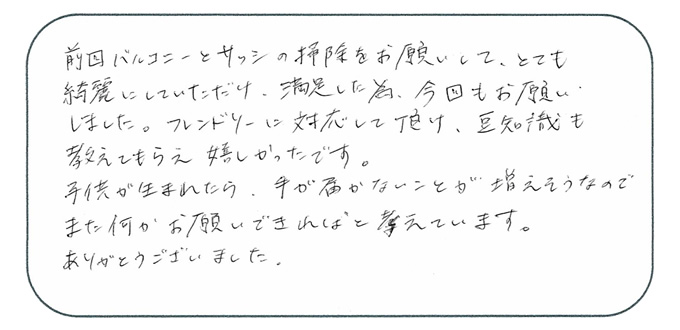 前回バルコニーとサッシの掃除をお願いして、とても
綺麗にしていただけ、満足した為、今回もお願い
しました。フレンドリーに対応して頂け、豆知識も
教えてもらえ嬉しかったです。
子供が生まれたら、手が届かないことが増えそうなので
また何かお願いできればと考えています。
ありがとうございました。